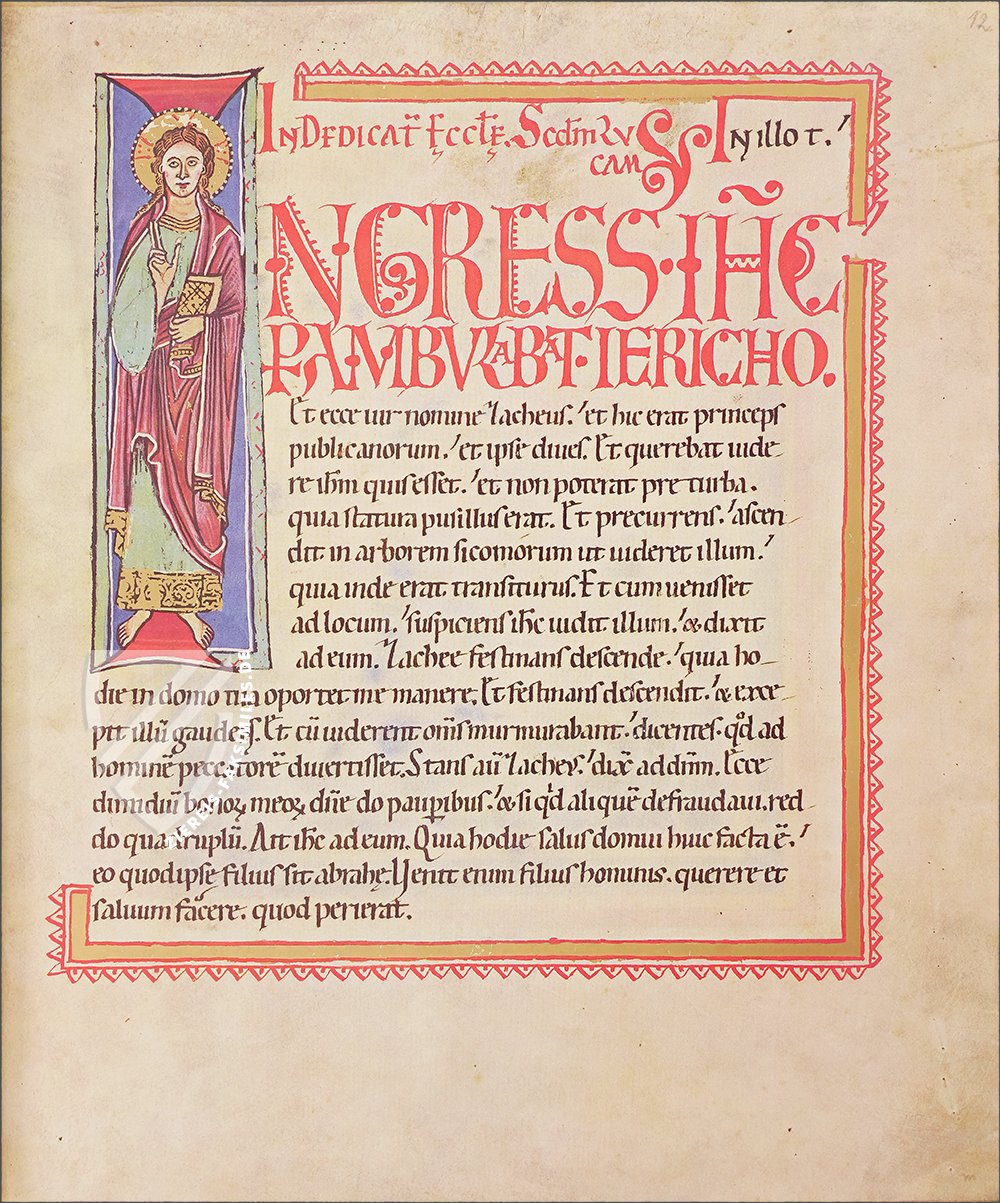 12
In Dedicat̄ Ęccłę. Scd̄m Lv
cam
In illo t.
INGRESS·IHC
PAMBVLABAT·IERICHO.
Et ecce uir nomine Zacheus. et hic erat princeps
publicanorum. et ipse diues. Et querebat uide-
re ihm quis esset. et non poterat pre turba.
quia statura pusillus erat. Et precurrens. ascen-
dit in arborem sicomorum ut uideret illum.
quia inde erat transiturus. Et cum uenisset
ad locum. suspiciens ihc uidit illum. & dixit
ad eum. Zachee festinans descende. quia ho-
die in domo tua oportet me manere. Et festinans descendit. & exce-
pit illū gaudens. Et cū uiderent om̄s murmurabant. dicentes. qd̄ ad
hominē peccatorē diuertisset. Stans aū Zacheus. dix̄ ad dn̄m. Ecce
dimidiū bonoꝝ meoꝝ dn̄e do paupībus. & si qd̄ aliquē defraudaui. red-
do quadruplū. Ait ihc ad eum. Quia hodie salus domui huic facta ē.
eo quod ipse filius sit abrahę. Venit enim filius hominis. querere et
saluum facere. quod perierat.
ZIEREIS-FAKSIMILES.DE